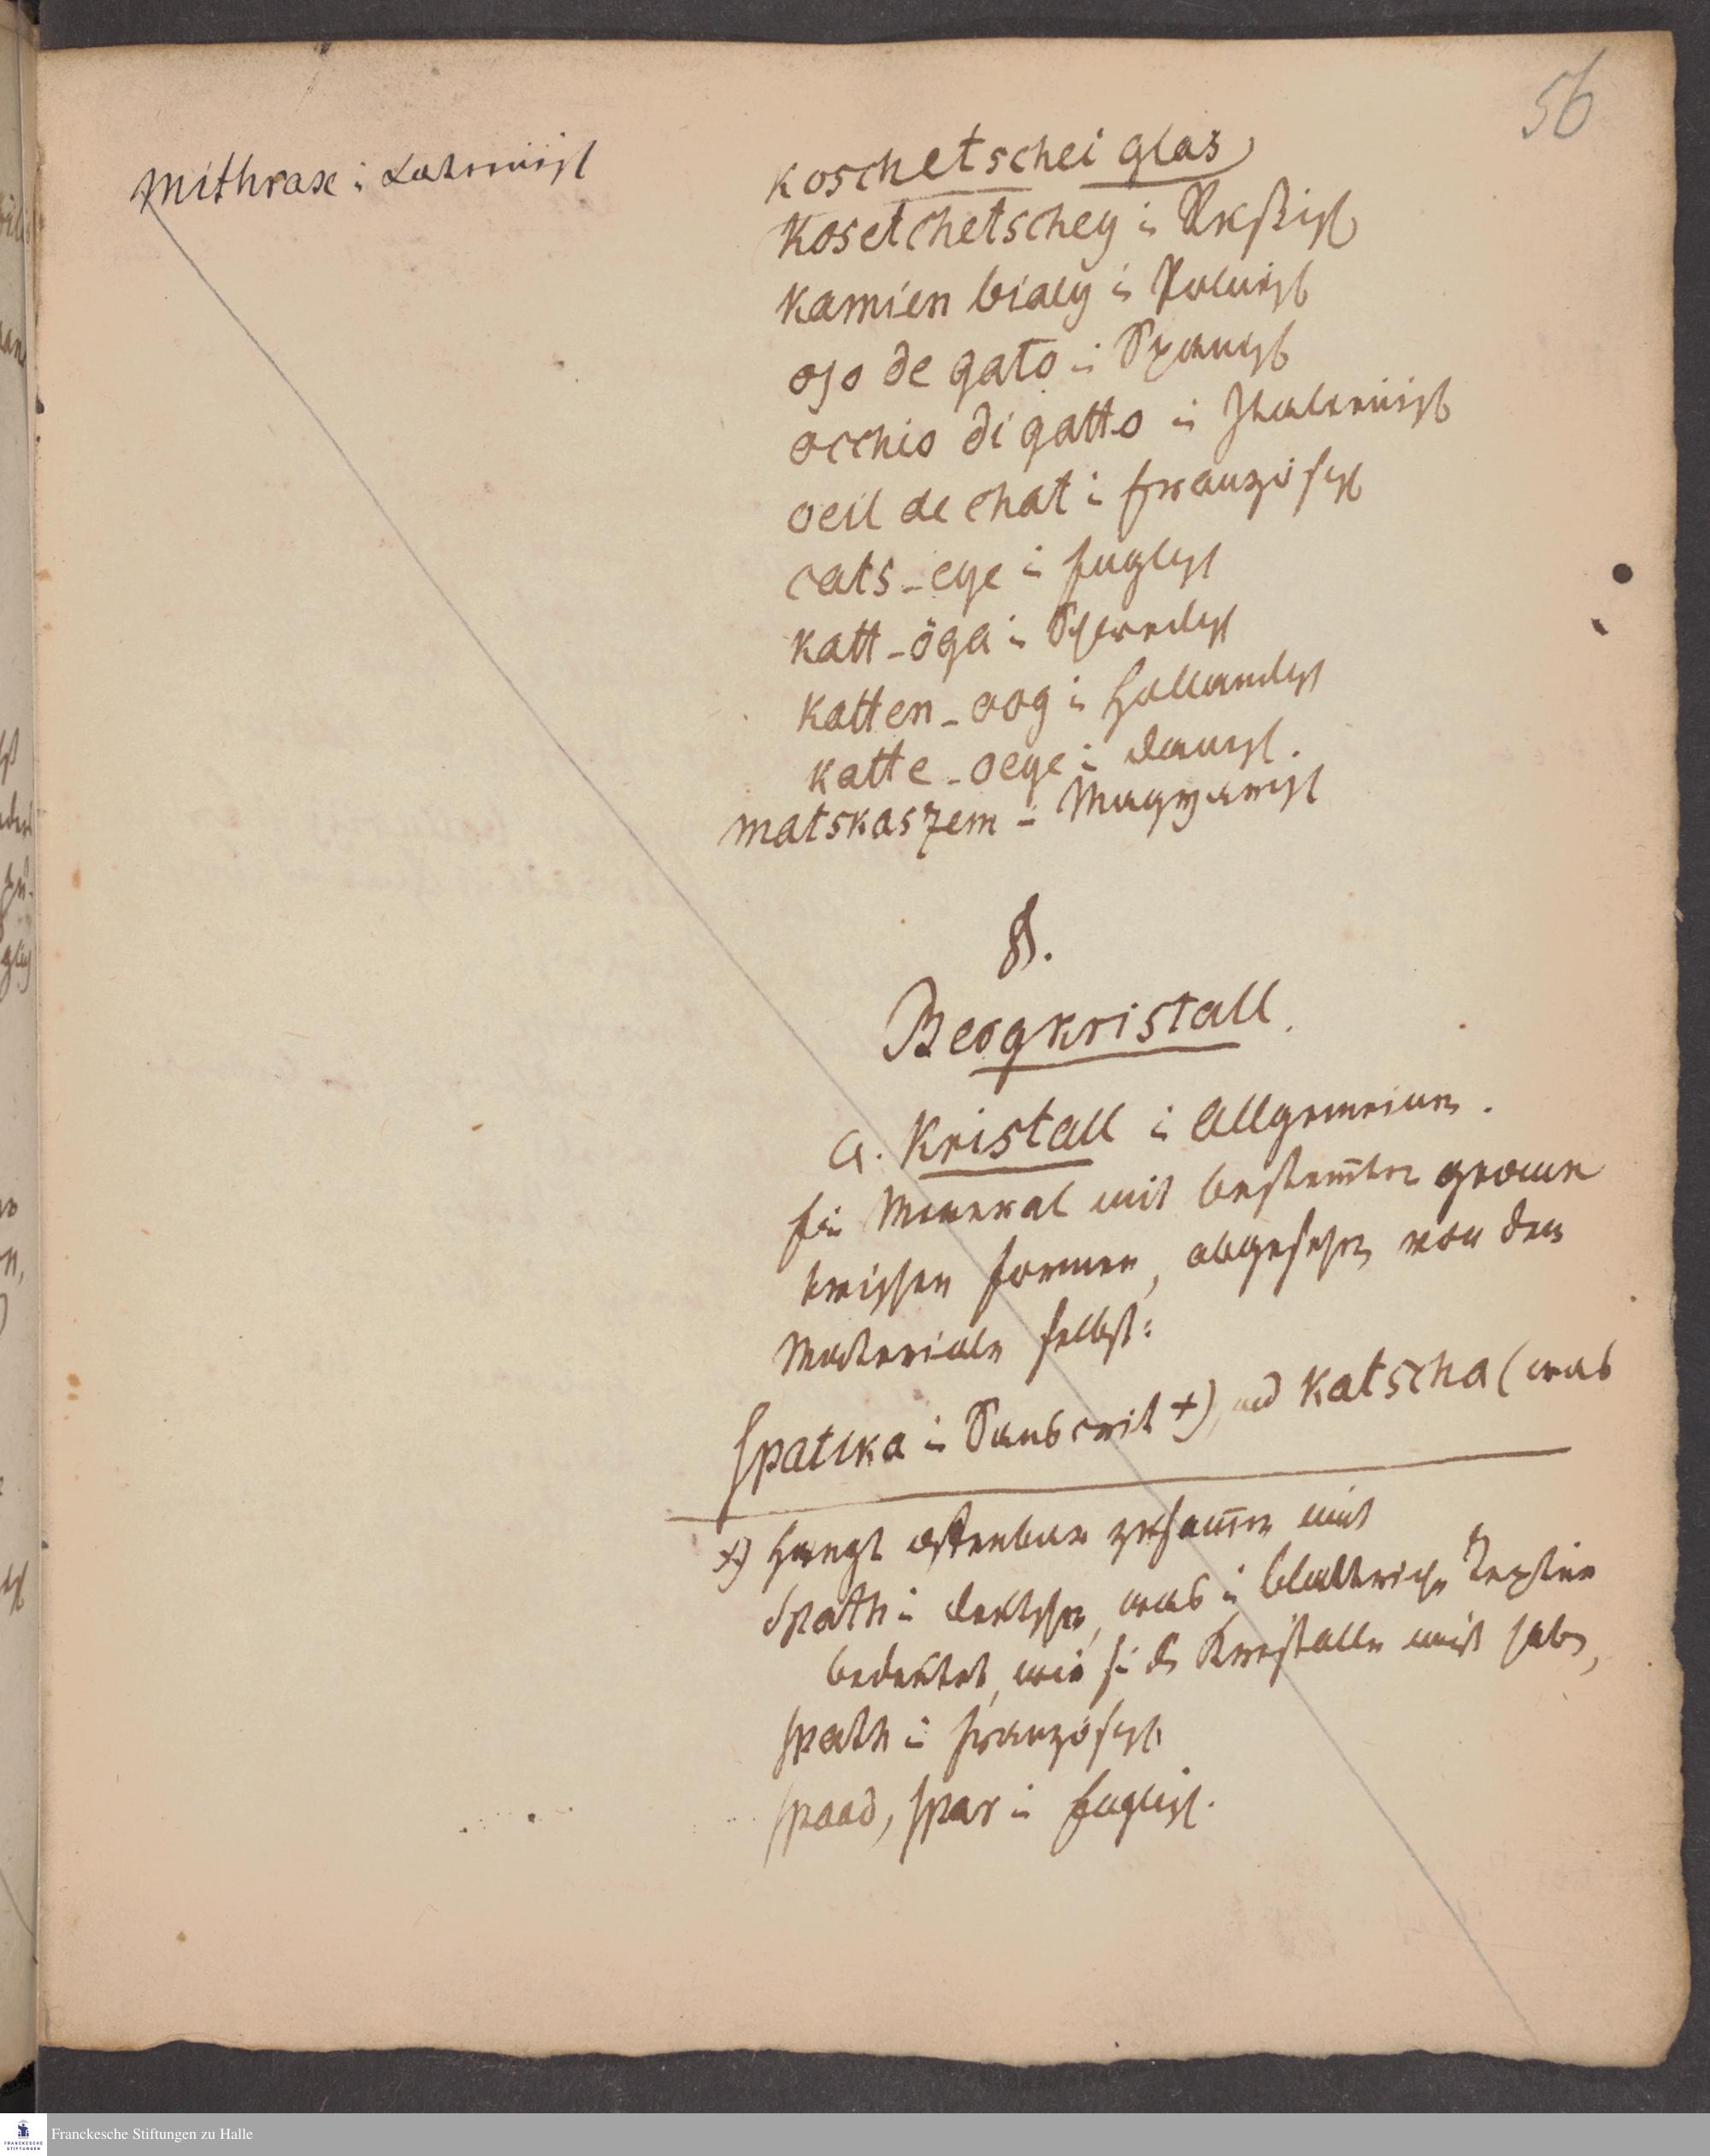 56
Mithrax i Lateinisch
koschetschei glas,
Kosetchetschey i Rußisch
Kamien bialy i Polnisch
ojo de gato i Spanisch
occhio di gatto i Italienisch
oeil de chat i französisch
cats-eye i Englisch
katt-öga i Schwedisch
katten-oog i Holländisch
katte-oeye i dänisch.
matskaszem i Magyarisch
§.
Bergkristall.
a. Kristall i Allgemeinen.
Ein Mineral mit bestimter geome
trischen Formen, abgesehen von dem
Materiale selbst:
Spatika i Sanscrit +) und Katscha (was
+) Hängt offenbar zusamen mit
Spath i deutschen, was i blättriche Textur
bedeutet, wie sie die Kristalle meist haben,
spath i französisch
spaad, spar i Englisch.
Franckesche Stiftungen zu Halle